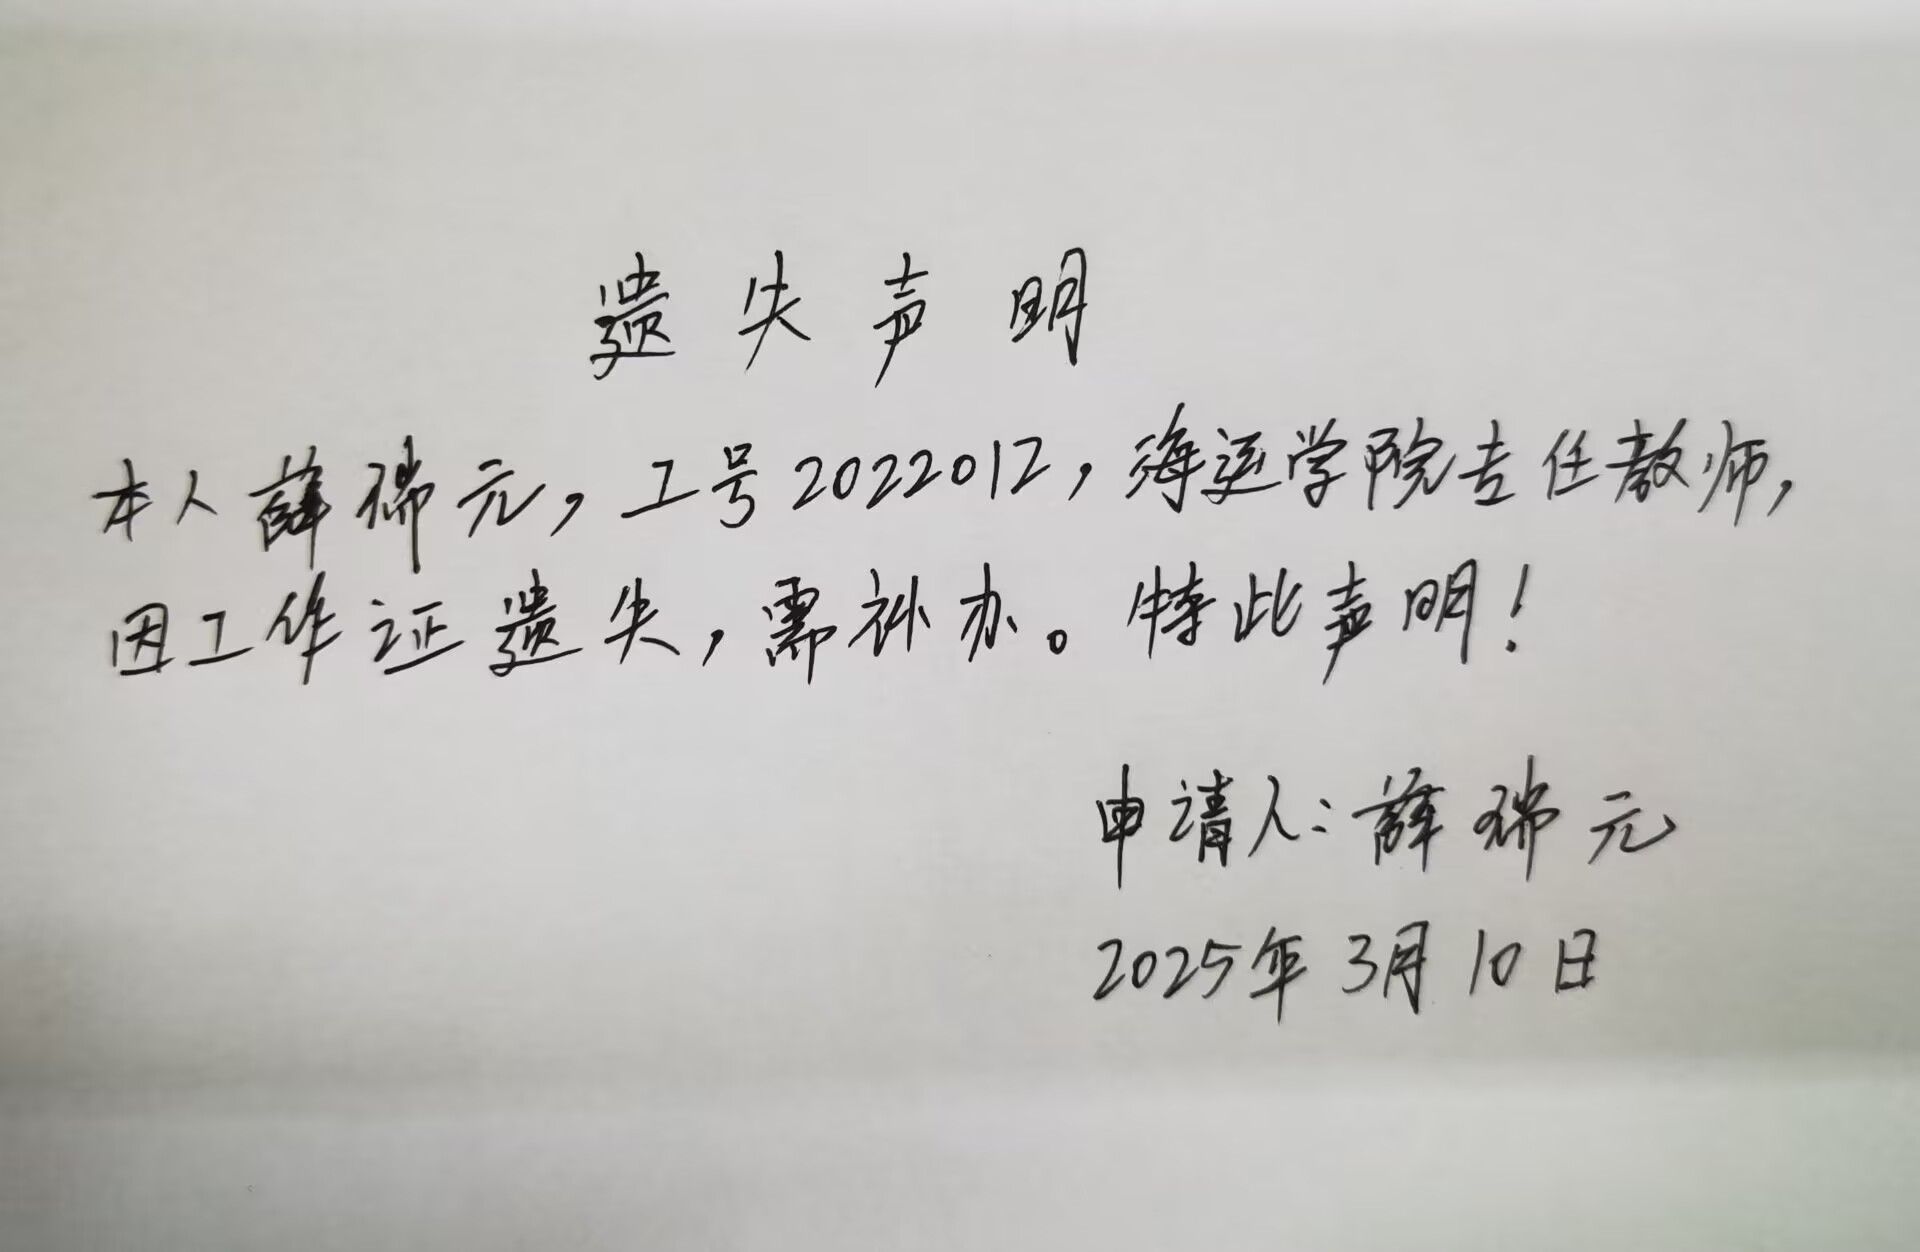 遗失声明
本人薛瑞元，工号2022012，海运学院专任教师，
因工作证遗失，需补办。特此声明！
申请人：薛瑞元
2025年3月10日